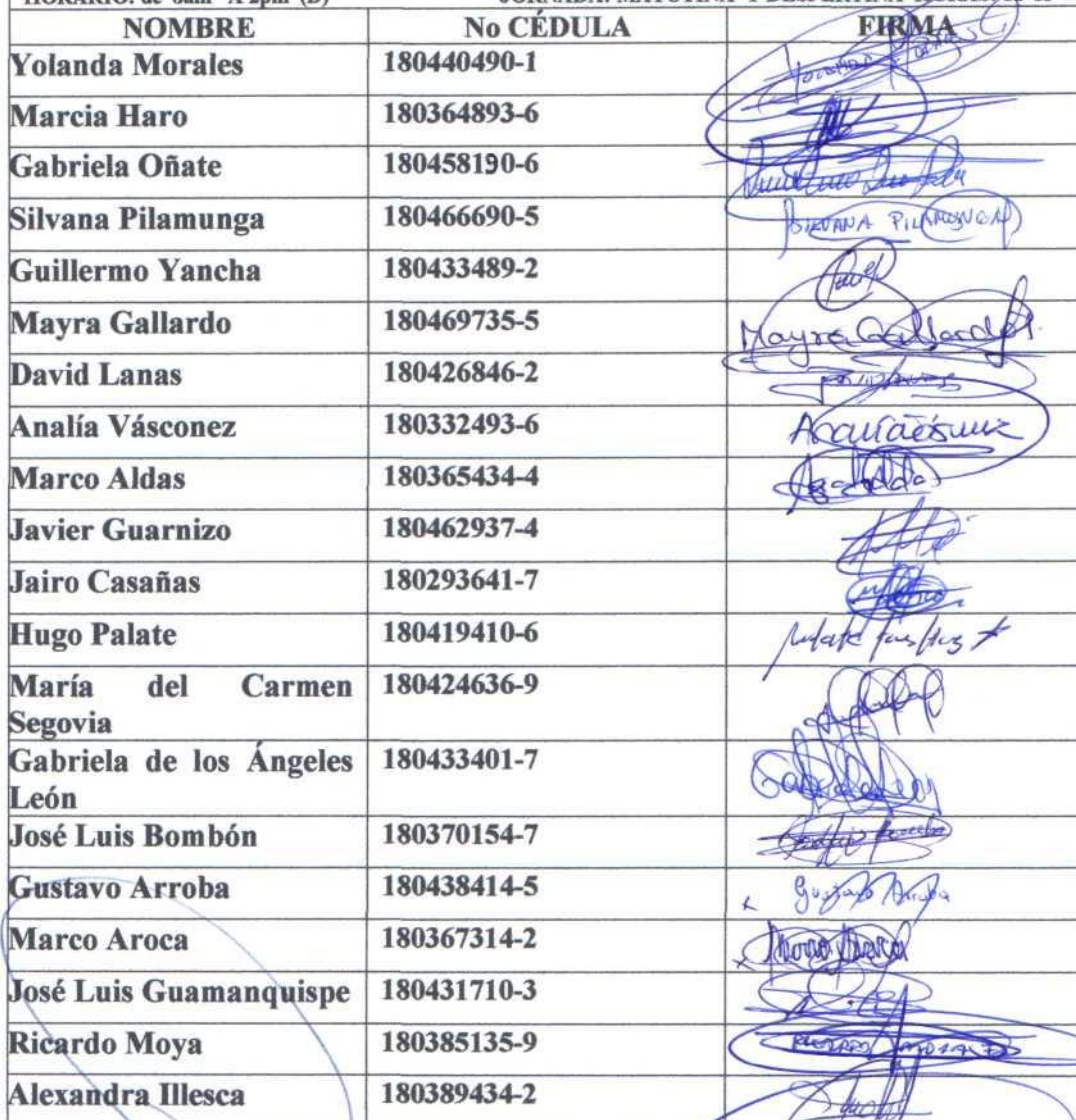 NOMBRE No CÉDULA FIRMA
Yolanda Morales 180440490-1
Marcia Haro 180364893-6
Gabriela Oñate 180458190-6
Silvana Pilamunga 180466690-5 SILVANA PILAMUNGA
Guillermo Yancha 180433489-2
Mayra Gallardo 180469735-5 Mayra Gallardo
David Lanas 180426846-2
Analía Vásconez 180332493-6
Marco Aldas 180365434-4
Javier Guarnizo 180462937-4
Jairo Casañas 180293641-7
Hugo Palate 180419410-6
María del Carmen 180424636-9
Segovia
Gabriela de los Ángeles 180433401-7
León
José Luis Bombón 180370154-7
Gustavo Arroba 180438414-5 Gustavo Arroba
Marco Aroca 180367314-2
José Luis Guamanquispe 180431710-3
Ricardo Moya 180385135-9
Alexandra Illesca 180389434-2